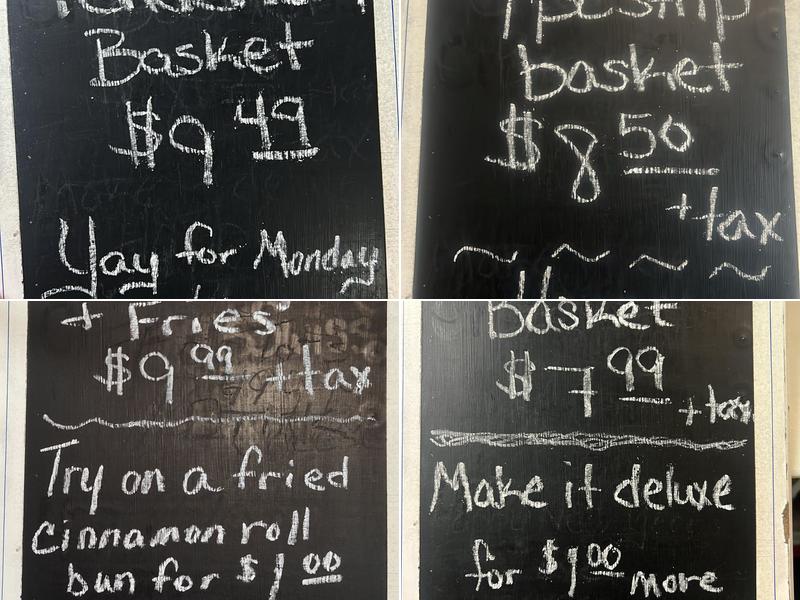 Basket
$9 49
Yay for Monday
basket
$8 50
+tax
+ Fries
$9 99 +tax
Try on a fried
cinnamon roll
bun for $1 00
Basket
$7 99
+tax
Make it deluxe
for $1 00 more